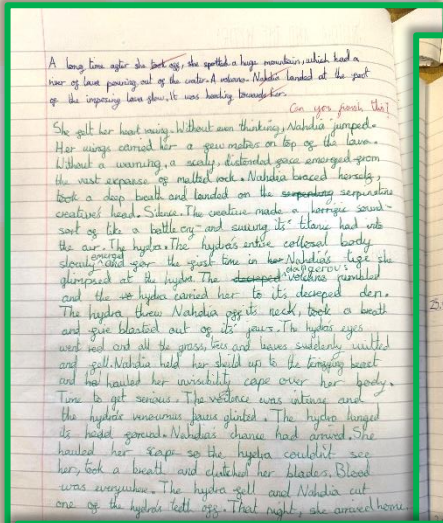 A long time after she took off, she spotted a huge mountain, which had a
river of lava pouring out of the crater. A volcano. Nahdia landed at the part
of the imposing lava flow. It was heading towards her.
Can you finish this?
She felt her heart racing. Without even thinking, Nahdia jumped.
Her wings carried her a few metres on top of the lava.
Without a warning, a scaly, distended face emerged from
the vast expanse of malted rock. Nahdia braced herself,
took a deep breath and landed on the serpentine
creatives head. Silence. The creature made a horrific sound-
sort of like a battle cry- and swung its' titanic had into
the air. The hydra. The hydra's entire collosal body
slowly emerged and for the first time in her Nahdia's life she
glimpsed at the hydra. The decreped dangerous volcano rumbled
and the hydra carried her to its decreped den.
The hydra threw Nahdia off its neck, took a breath
and fire blasted out of its' jaws. The hydra's eyes
went red and all the grass, trees and leaves suddenly wilted
and fell. Nahdia held her shield up to the terrifying beast
and hauled her invisibility cape over her body.
Time to get serious. The was intense and
the hydra's venoumus glinted. The hydra lunged
its head forward. Nahdia's chance had arrived. She
hauled her cape so the hydra couldn't see
her, took a breath and clutched her blades. Blood
was everywhere. The hydra fell and Nahdia cut
one of the hydra's teeth off. That night, she arrived home.